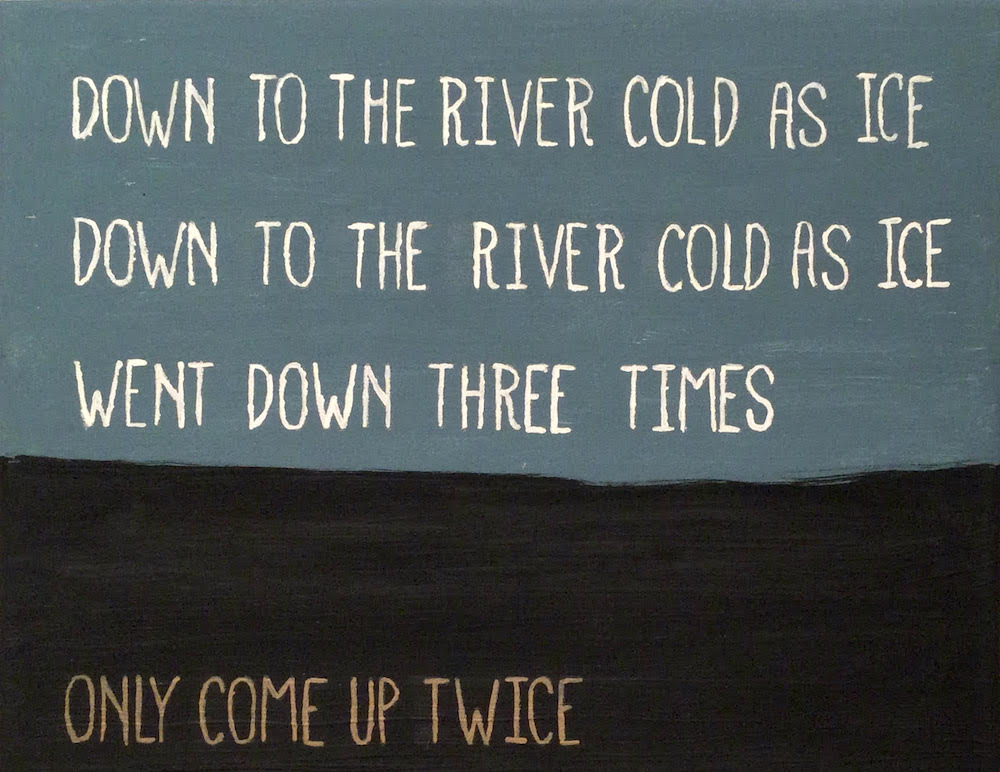 DOWN TO THE RIVER COLD AS ICE
DOWN TO THE RIVER COLD AS ICE
WENT DOWN THREE TIMES
ONLY COME UP TWICE